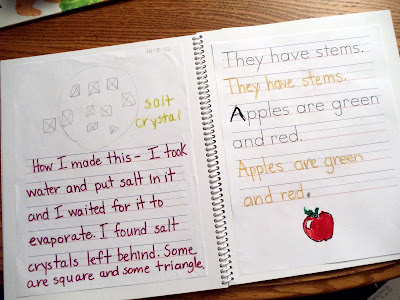 salt
crystal
How I made this - I took
water and put salt in it
and I waited for it to
evaporate. I found salt
crystals left behind. Some
are square and some triangle.
They have stems.
They have stems.
Apples are green
and red.
Apples are green
and red.